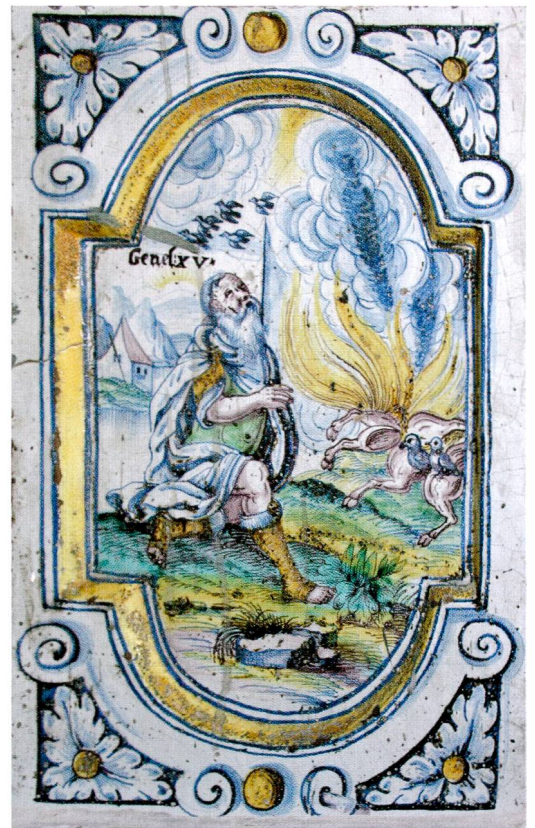 Genes. xv.